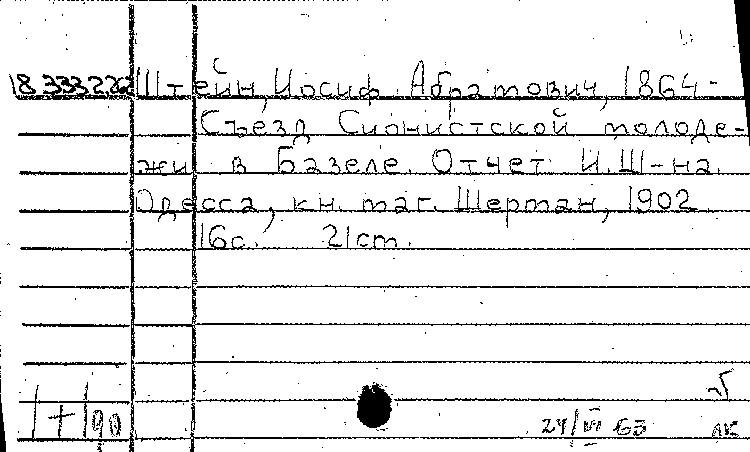 18.333.226 Штейн, Иосиф Абрамович, 1864-
Съезд Сионистской молоде-
жи в Базеле. Отчет И.Ш-на.
Одесса, кн. маг. Шерман, 1902
16с. 21см.
1+190
24/VI 63